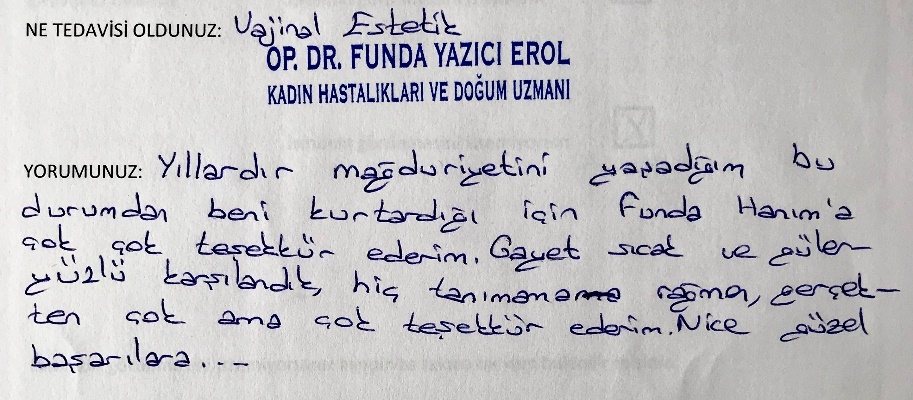 NE TEDAVİSİ OLDUNUZ: Vajinal Estetik
OP. DR. FUNDA YAZICI EROL
KADIN HASTALIKLARI VE DOĞUM UZMANI
YORUMUNUZ: Yıllardır mağduriyetini yaşadığım bu
durumdan beni kurtardığı için Funda Hanım'a
çok çok teşekkür ederim. Gayet sıcak ve güler
yüzlü karşılandık, hiç tanımamama rağmen, gerçek-
ten çok ama çok teşekkür ederim. Nice güzel
başarılara....